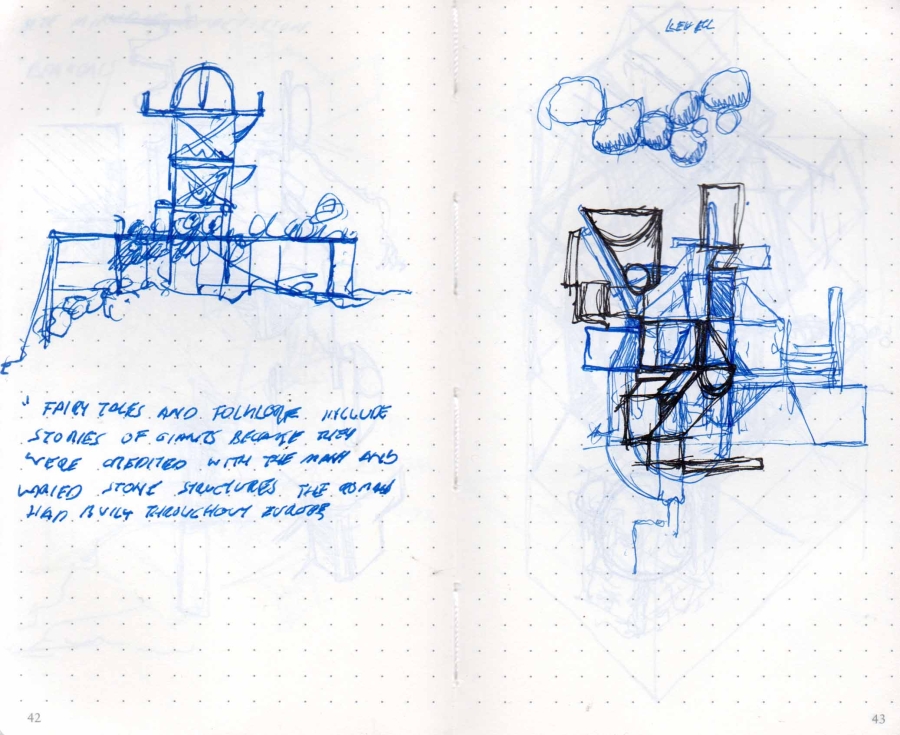 " FAIRY TALES AND FOLKLORE INCLUDE
STORIES OF GIANTS BECAUSE THEY
WERE CREDITED WITH THE MANY AND
VARIED STONE STRUCTURES THE ROMANS
HAD BUILT THROUGHOUT EUROPE
42
43